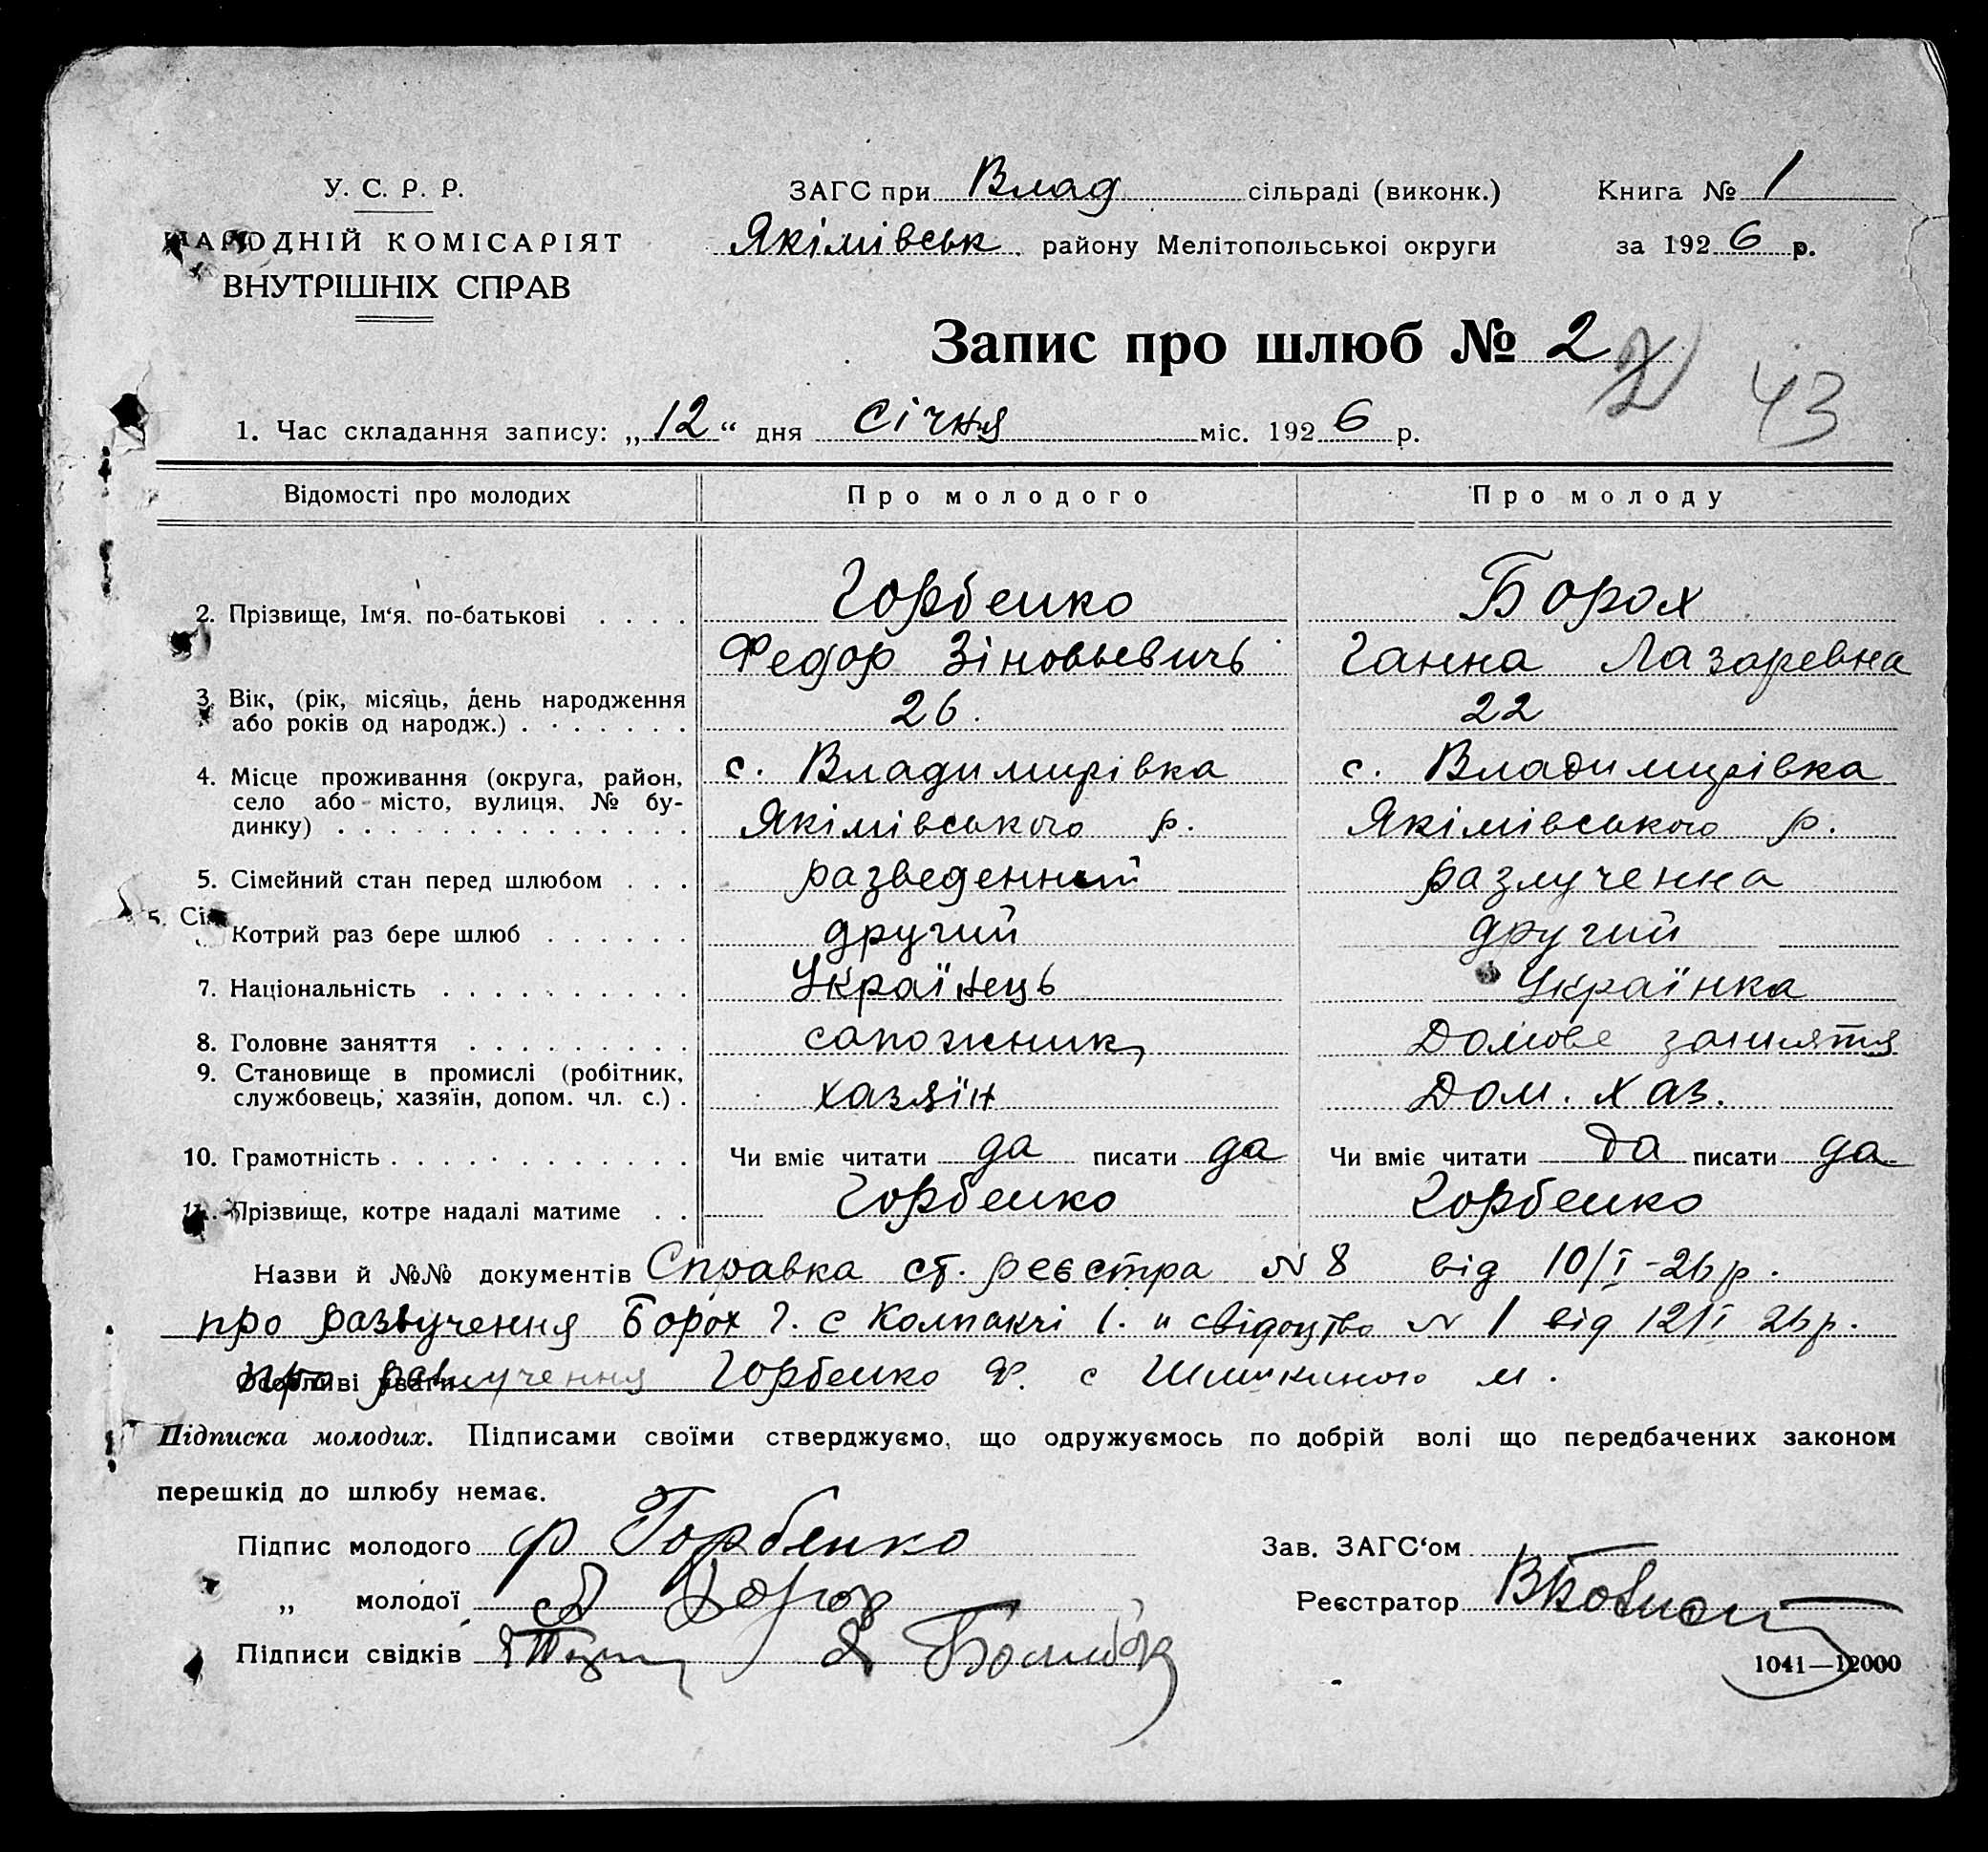 У. С. Р. Р.
НАРОДНІЙ КОМІСАРІЯТ
ВНУТРІШНІХ СПРАВ
ЗАГС при Влад сільраді (виконк.) Книга № 1
Якімівськ. району Мелітопольської округи за 1926 р.
Запис про шлюб № 2
2 43
1. Час складання запису: „12“ дня Січня міс. 1926 р.
Відомості про молодих Про молодого Про молоду
2. Прізвище, Ім‘я. по-батькові . . . . Горбенко Борох
Федор Зіновьевичь Ганна Лазаревна
3. Вік, (рік, місяць, день народження 26. 22
або років од народж.) . . . . . . .
4. Місце проживання (округа, район, с. Владимирівка с. Владимирівка
село або місто, вулиця, № бу-
динку) . . . . . . . . . . . . . . Якімівського р. Якімівського р.
5. Сімейний стан перед шлюбом . . . разведенный разлученна
5. Сі
Котрий раз бере шлюб . . . . . . другий другий
7. Національність . . . . . . . . . . Українець Українка
8. Головне заняття . . . . . . . . . сапожник Домове заняття
9. Становище в промислі (робітник,
службовець, хазяїн, допом. чл. с.) . хазяїн Дом. хаз.
10. Грамотність . . . . . . . . . . . . Чи вміє читати да писати да Чи вміє читати да писати да
11. Прізвище, котре надалі матиме . . Горбенко Горбенко
Назви й №№ документів Справка ст. реєстра № 8 від 10/I-26 р.
про разлучення Борох Г. с Колпакчі І. и свідоцтво № 1 від 12/I 26 р.
Особливі уваги про разлучення Горбенко Ф. с м.
Підписка молодих. Підписами своїми стверджуємо, що одружуємось по добрій волі що передбачених законом
перешкід до шлюбу немає.
Підпис молодого Ф Горбенко Зав. ЗАГС‘ом
„ молодої Борох Реєстратор
Підписи свідків
1041—12000